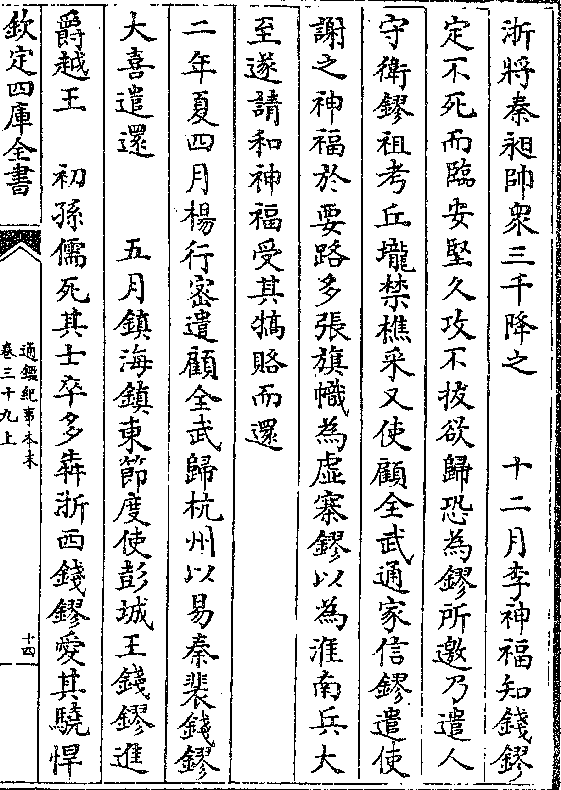 浙將秦昶帥衆三千降之　　十二月李神福知錢鏐
定不死而臨安堅久攻不拔欲歸恐為鏐所邀乃遣人
守衛鏐祖考丘壠禁樵采又使顧全武通家信鏐遣使
謝之神福於要路多張旗幟為虛寨鏐以為淮南兵大
至遂請和神福受其犒賂而還
二年夏四月楊行密遣顧全武歸杭州以易秦裴錢鏐
大喜遣還　　五月鎮海鎮東節度使彭城王錢鏐進
爵越王　初孫儒死其士卒多犇浙西錢鏐愛其驍悍
欽定四庫全書
通鑑紀事本末
卷三十九上
十四